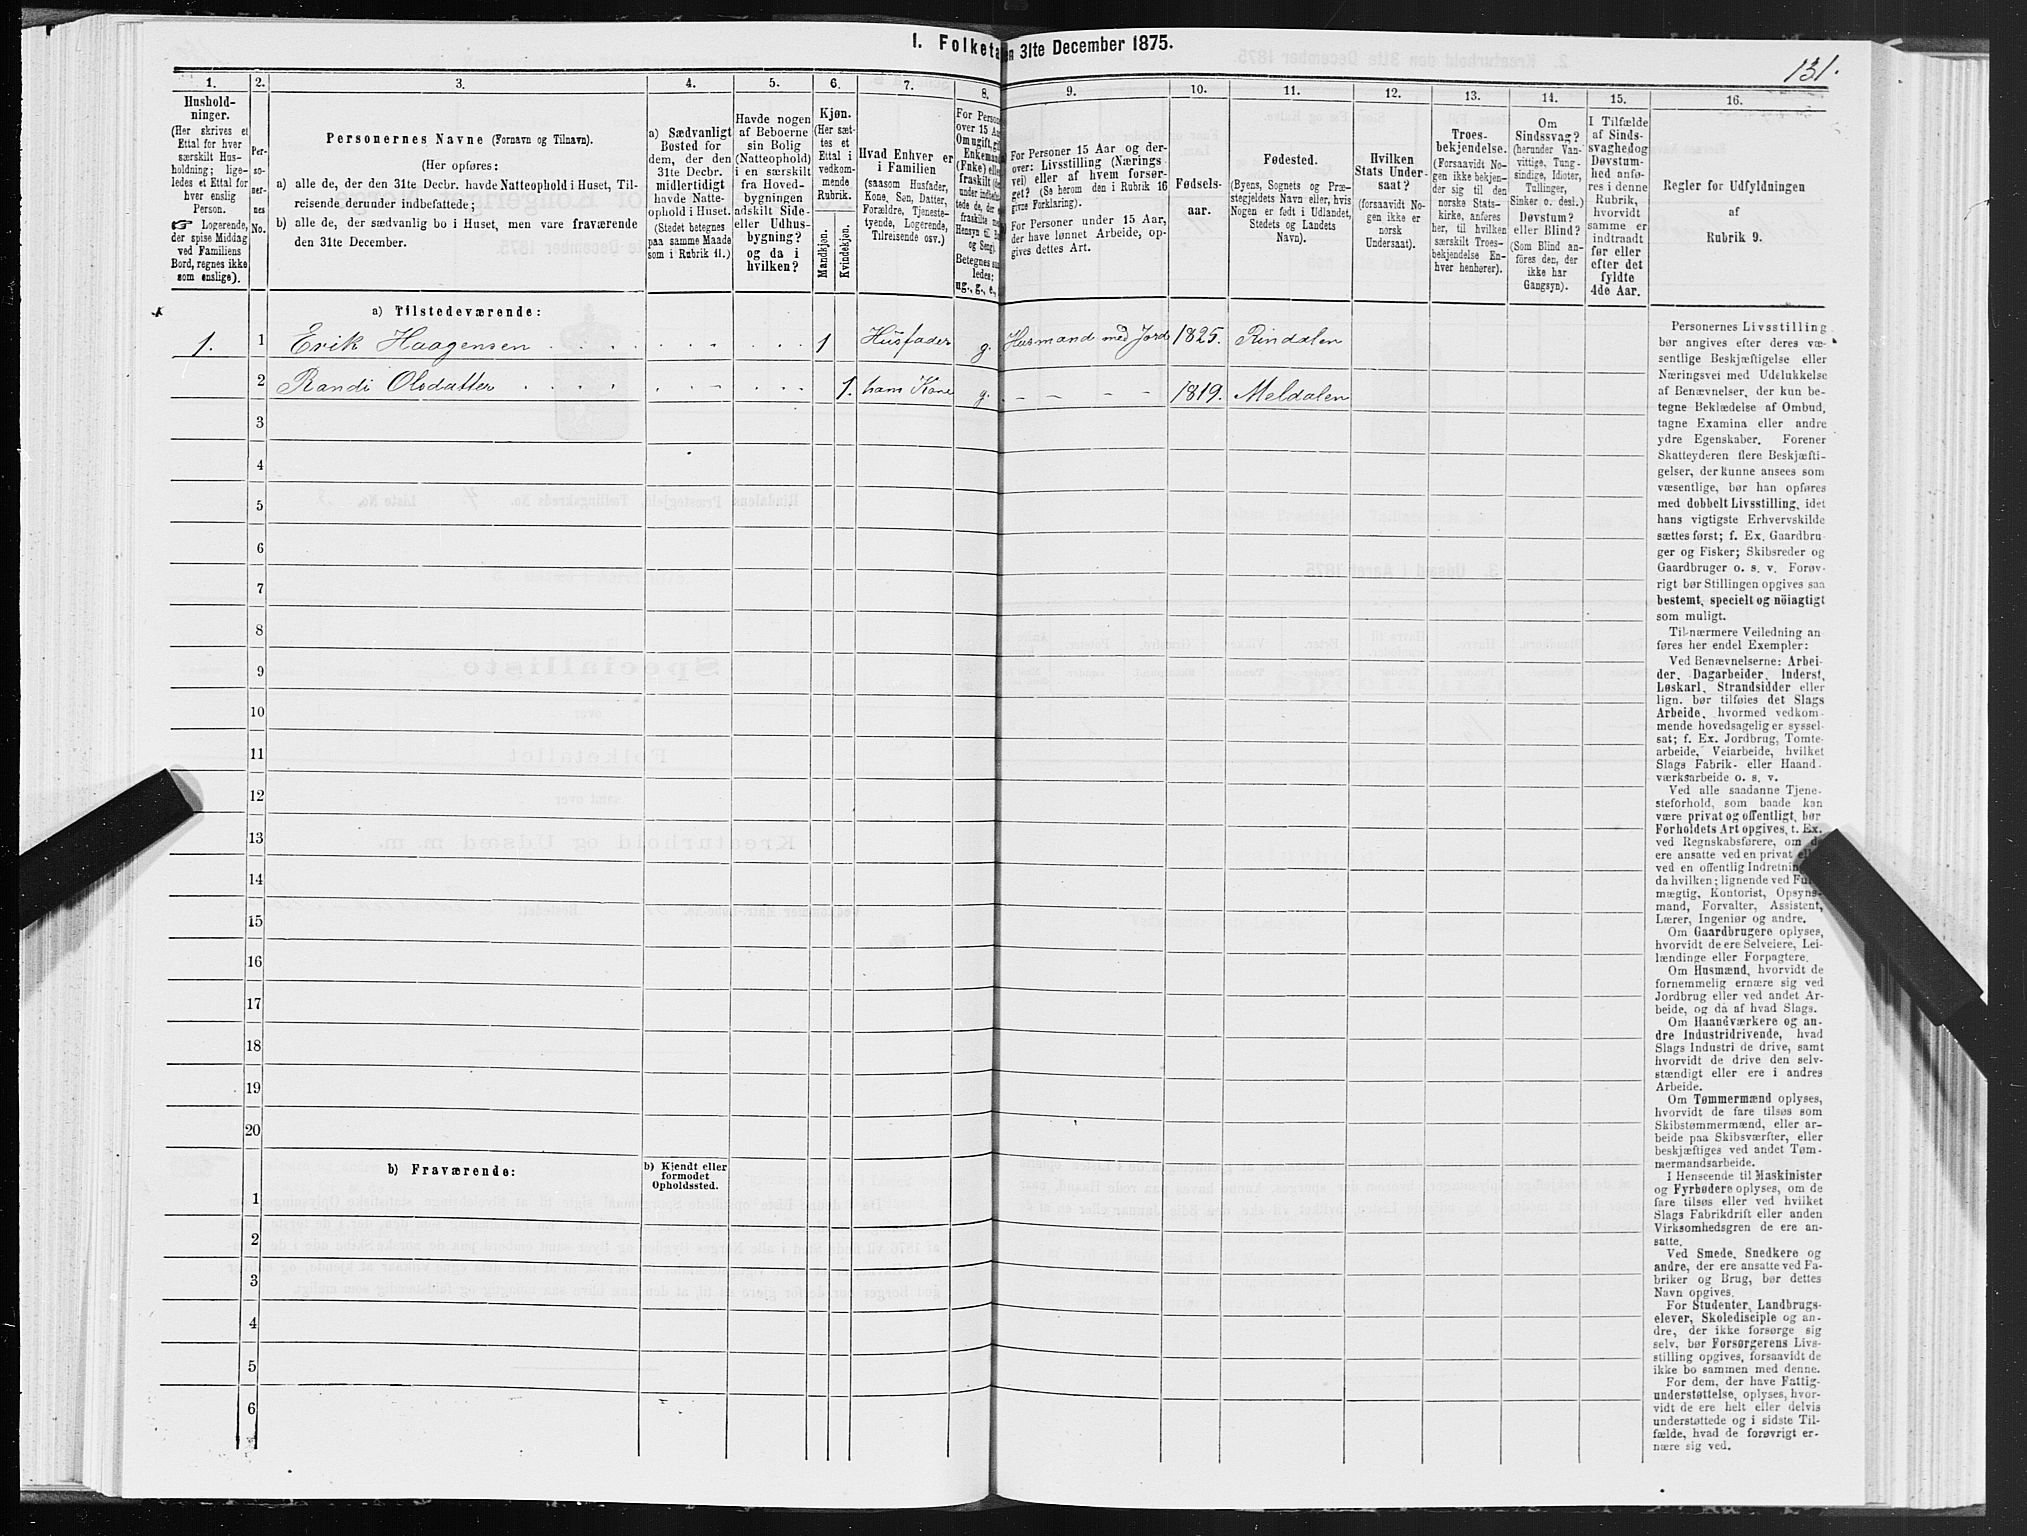 I. Folketa
en 31te December 1875.
131.
1.
2.
3.
4.
5.
6.
7.
8.
9.
10.
11.
12.
13.
14.
15.
16.
Hushold-
ninger.
(Her skrives et
Ettal for hver
særskilt Hus-
holdning; lige-
ledes et Ettal for
hver enslig
Person.
☞ Logerende,
der spise Middag
ved Familiens
Bord, regnes ikke
som enslige).
Per-
so-
ner-
nes
No.
Personernes Navne (Fornavn og Tilnavn).
(Her opføres:
a) alle de, der den 31te Decbr. havde Natteophold i Huset, Til-
reisende derunder indbefattede;
b) alle de, der sædvanlig bo i Huset, men vare fraværende
den 31te December.
a) Sædvanligt
Bosted for
dem, der den
31te Decbr.
midlertidigt
havde Natte-
ophold i Huset.
(Stedet betegnes
paa samme Maade
som i Rubrik 11.)
Havde nogen
af Beboerne
sin Bolig
(Natteophold)
i en særskilt
fra Hoved-
bygningen
adskilt Side-
eller Udhus-
bygning?
og da i
hvilken?
Kjøn.
(Her sæt-
tes et
Ettal i
vedkom-
mende
Rubrik.
Mandkjøn.
Kvindekjøn.
Hvad Enhver er
i Familien
(saasom Husfader,
Kone, Søn, Datter,
Forældre, Tjeneste-
tyende, Logerende,
Tilreisende osv.)
For Person
over 15 Aa
Om ugift, gi
Enkeman
(Enke) elle
fraskilt
Hensyn til
Betegnes
ledes:
ug., g., e.,
For Personer 15 Aar og der-
over: Livsstilling (Nærings
vei) eller af hvem forsør-
get? (Se herom den i Rubrik 16
givne Forklaring).
For Personer under 15 Aar,
der have lønnet Arbeide, op-
gives dettes Art.
Fødsels-
aar.
Fødested.
(Byens, Sognets og Præ-
stegjeldets Navn eller, hvis
Nogen er født i Udlandet,
Stedets og Landets
Navn).
Hvilken
Stats Under-
saat?
(forsaavidt No-
gen ikke er
norsk
Undersaat).
Troes-
bekjendelse.
(Forsaavidt No-
gen ikke bekjen-
der sig til den
norske Stats-
kirke, anføres
her, til hvilken
særskilt Troes-
bekjendelse En-
hver henhører).
Om
Sindssvag?
(herunder Van-
vittige, Tung-
sindige, Idioter,
Tullinger,
Sinker o. desl.)
Døvstum?
eller Blind?
(Som Blind an-
føres den, der
ikke har
Gangsyn).
I Tilfælde
af Sinds-
svaghed og
Døvstum-
hed anfø-
res i denne
Rubrik,
hvorvidt
samme er
indtraadt
før eller
efter det
fyldte
4de Aar.
Regler for Udfyldningen
af
Rubrik 9.
a) Tilstedeværende:
1. 1 Erik Haagensen 1 Husfader g. Husmand med Jord 1825. Rindalen
2 Randi Olsdatter 1. hans Kone g. 1819. Meldalen
3
4
5
6
7
8
9
10
11
12
13
14
15
16
17
18
19
20
b) Fraværende:
b) Kjendt eller
formodet
Opholdssted.
1
2
3
4
5
6
Personernes Livsstilling
bør angives efter deres væ-
sentlige Beskjæftigelse eller
Næringsvei med Udelukkelse
af Benævnelser, der kun be-
tegne Beklædelse af Ombud,
tagne Examina eller andre
ydre Egenskaber. Forener
Skatteyderen flere Beskjæfti-
gelser, der kunne ansees som
væsentlige, bør han opføres
med dobbelt Livsstilling, idet
hans vigtigste Erhvervskilde
sættes først; f. Ex. Gaardbru-
ger og Fisker; Skibsreder og
Gaardbruger o. s. v. Forøv-
rigt bør Stillingen opgives saa
bestemt, specielt og nöiagtigt
som muligt.
Til nærmere Veiledning an
føres her endel Exempler:
Ved Benævnelserne: Arbei-
der, Dagarbeider, Inderst,
Løskarl, Strandsidder eller
lign. bør tilføies det Slags
Arbeide, hvormed vedkom-
mende hovedsagelig er syssel-
sat; f. Ex. Jordbrug, Tomte-
arbeide, Veiarbeide, hvilket
Slags Fabrik- eller Haand
værksarbeide o. s. v.
Ved alle saadanne Tjene-
steforhold, som baade kan
være privat og offentligt, bør
Forholdets Art opgives, t. Ex.
ved Regnskabsførere, om d
ere ansatte ved en privat elle
ved en offentlig Indretnin
da hvilken; lignende ved Ful
mægtig, Kontorist, Opsyns-
mand, Forvalter, Assistent,
Lærer, Ingeniør og andre.
Om Gaardbrugere oplyses,
hvorvidt de ere Selveiere, Lei-
lændinge eller Forpagtere.
Om Husmænd, hvorvidt de
fornemmelig ernære sig ved
Jordbrug eller ved andet Ar-
beide, og da af hvad Slags.
Om Haandværkere og an-
dre Industridrivende, hvad
Slags Industri de drive, samt
hvorvidt de drive den selv-
stændigt eller ere i andres
Arbeide.
Om Tømmermænd oplyses,
hvorvidt de fare tilsøs som
Skibstømmermænd, eller ar-
beide paa Skibsværfter, eller
beskjæftiges ved andet Tøm-
mermandsarbeide.
I Henseende til Maskinister
og Fyrbødere oplyses, om de
fare tilsøs eller ved hvilket
Slags Fabrikdrift eller anden
Virksomhedsgren de ere an-
satte.
Ved Smede, Snedkere og
andre, der ere ansatte ved Fa-
briker og Brug, bør dettes
Navn opgives.
For Studenter, Landbrugs-
elever, Skoledisciple og an-
dre, der ikke forsørge sig
selv, bør Forsørgerens Livs-
stilling opgives, forsaavidt de
ikke bo sammen med denne.
For dem, der have Fattig-
understøttelse, oplyses, hvor-
vidt de ere helt eller delvis
understøttede og i sidste Til-
fælde, hvad de forøvrigt er-
nære sig ved.